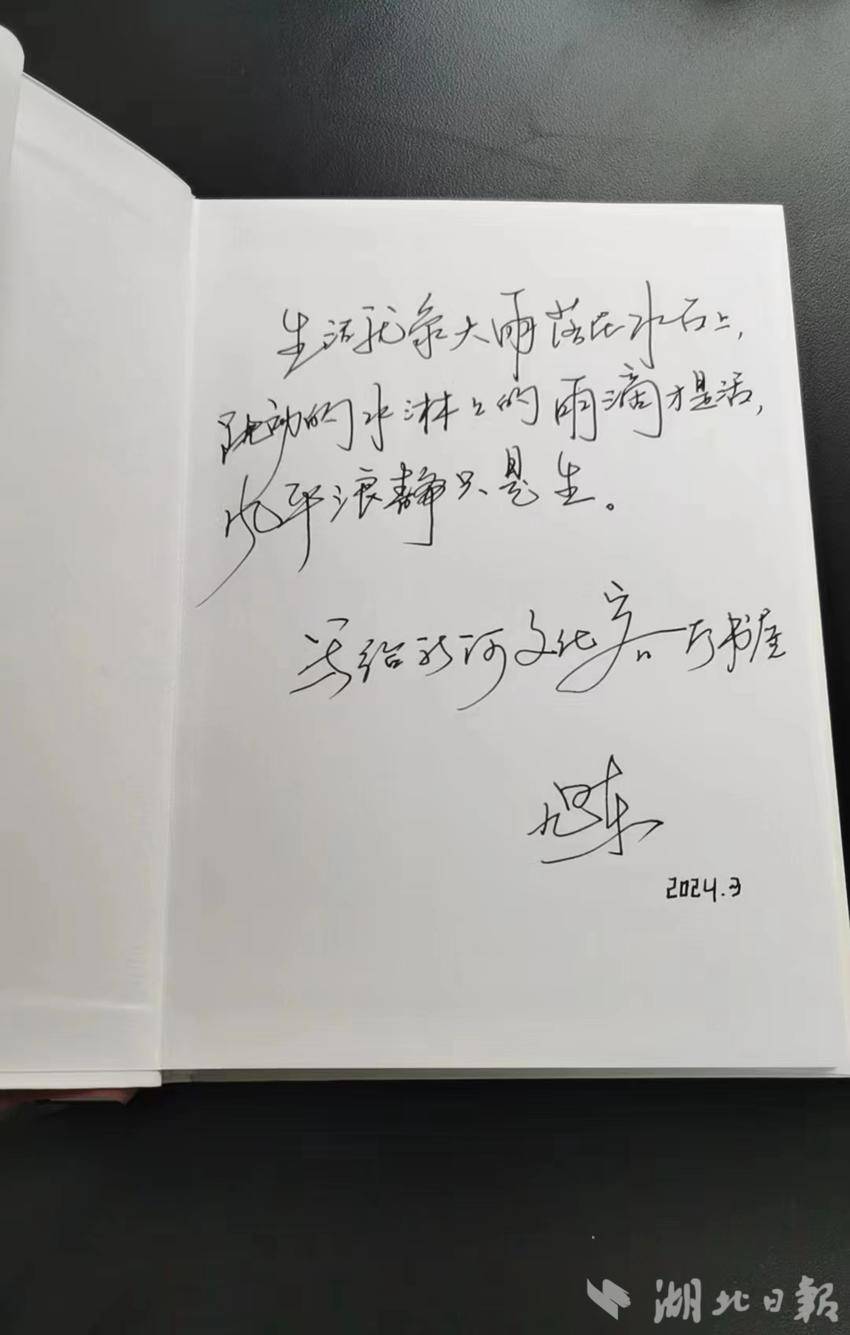 生活就象大雨落在水石上，
跳动的水淋上的雨滴才是活，
风平浪静只是生。
写给新河文化客厅书屋
旭东
2024.3
湖北日报